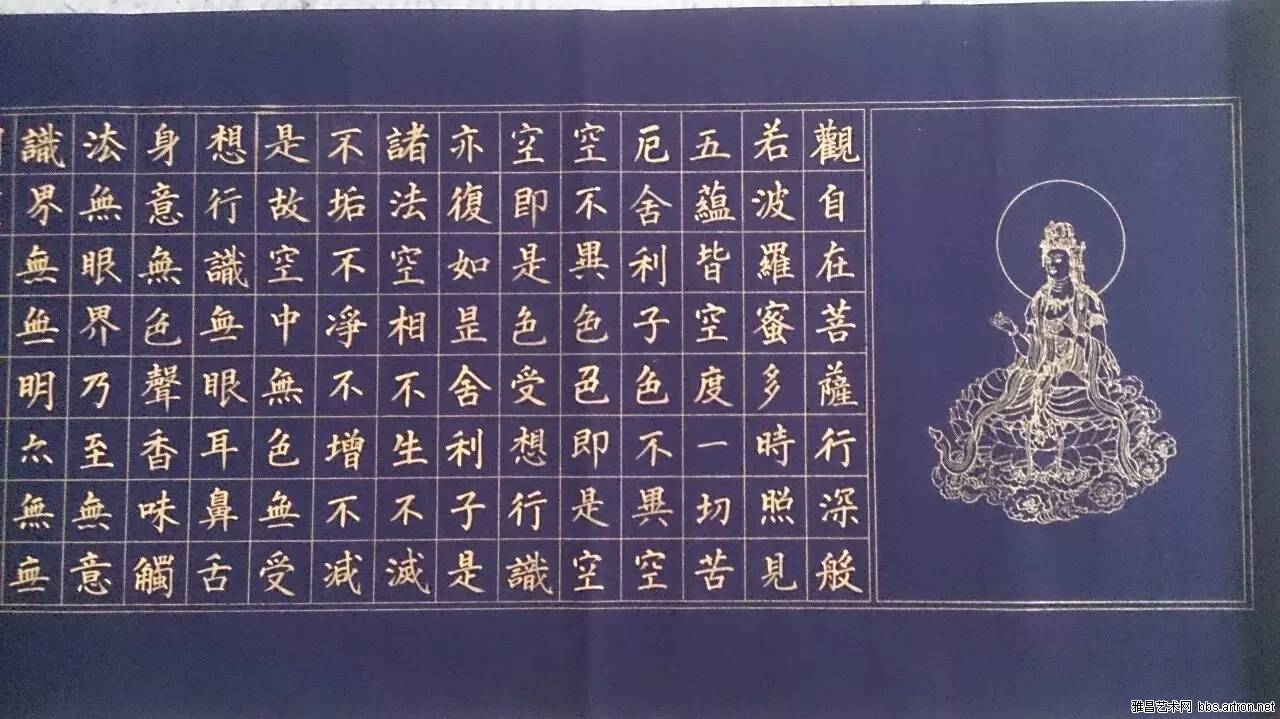 觀自在菩薩行深般
若波羅蜜多時照見
五蘊皆空度一切苦
厄舍利子色不異空
空不異色色即是空
空即是色受想行識
亦復如是舍利子是
諸法空相不生不滅
不垢不淨不增不減
是故空中無色無受
想行識無眼耳鼻舌
身意無色聲香味觸
法無眼界乃至無意
識界無無明亦無無
雅昌艺术网 bbs.artron.net